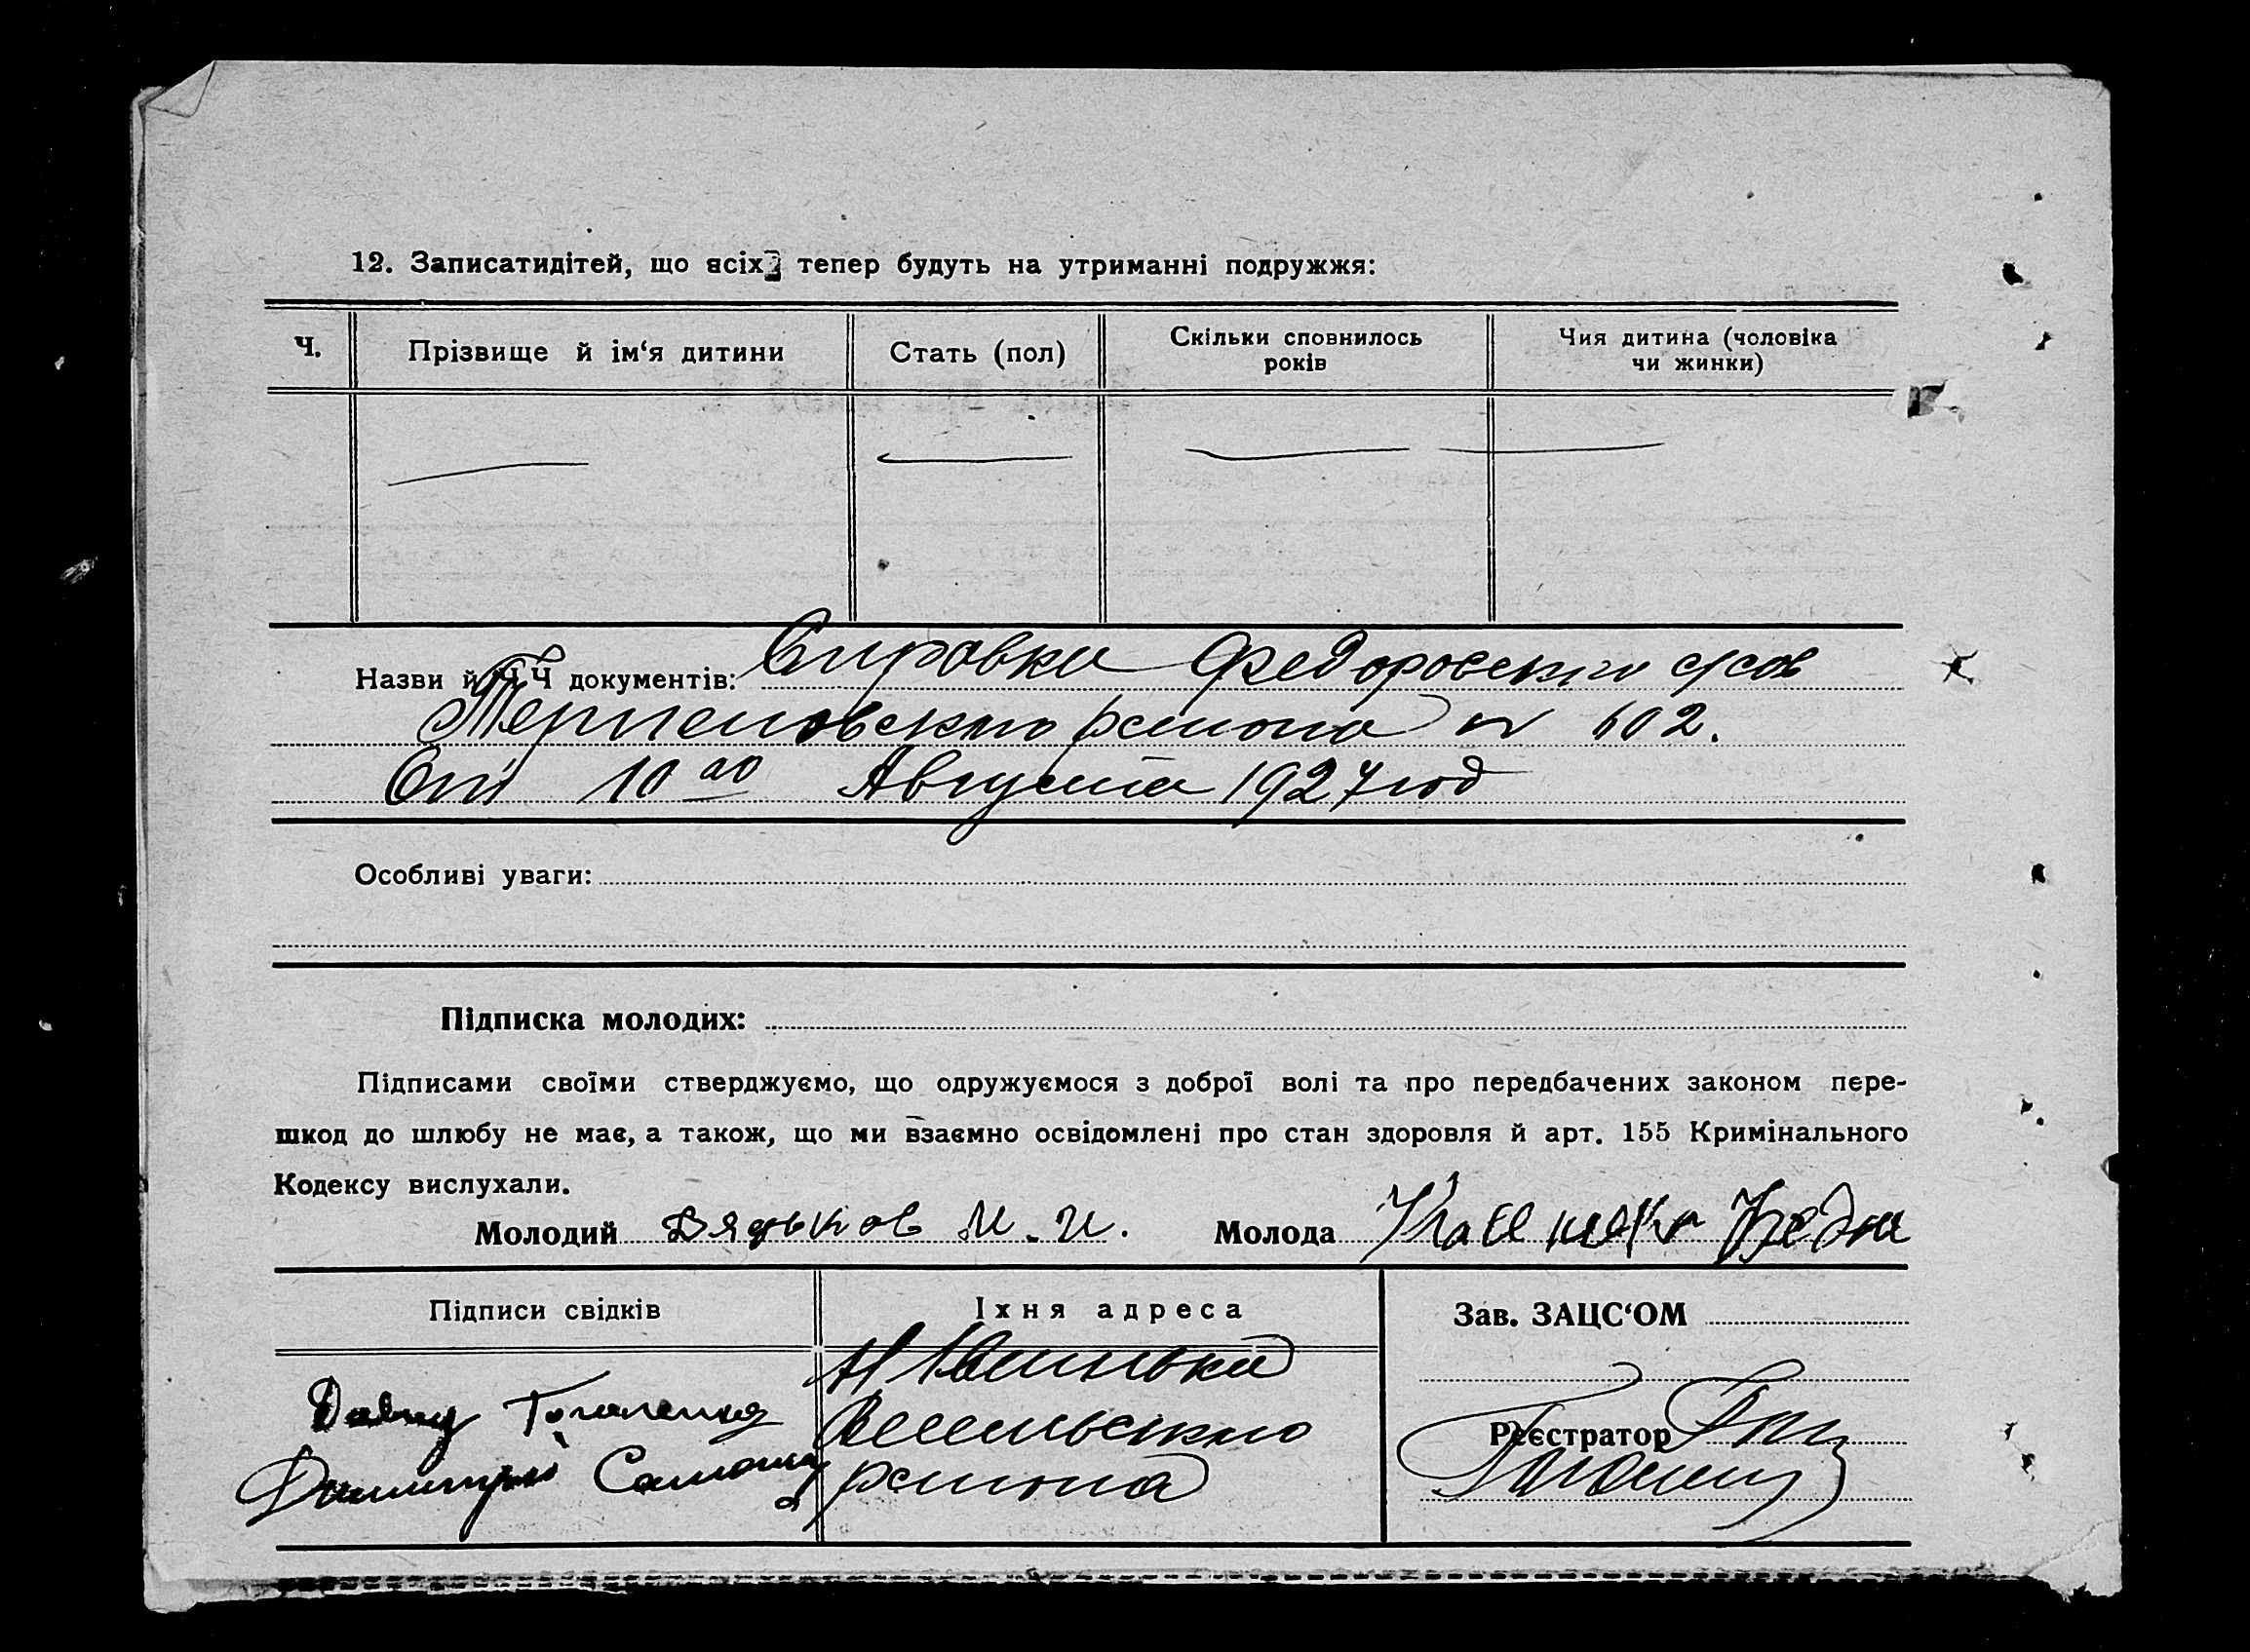 12. Записатидітей, що всіх тепер будуть на утриманні подружжя:
Ч.
Прізвище й ім‘я дитини
Стать (пол)
Скільки сповнилось
років
Чия дитина (чоловіка
чи жинки)
Назви й ЧЧ документів: Справка Федоровского с/сов
района № 602.
От 10го Августа 1927 год
Особливі уваги:
Підписка молодих:
Підписами своїми стверджуємо, що одружуємося з доброї волі та про передбачених законом пере-
шкод до шлюбу не має, а також, що ми взаємно освідомлені про стан здоровля й арт. 155 Кримінального
Кодексу вислухали.
Молодий Дядьков И. И. Молода
Підписи свідків
Їхня адреса
Зав. ЗАЦС‘ОМ
Давид
Димитрий
района
Реєстратор